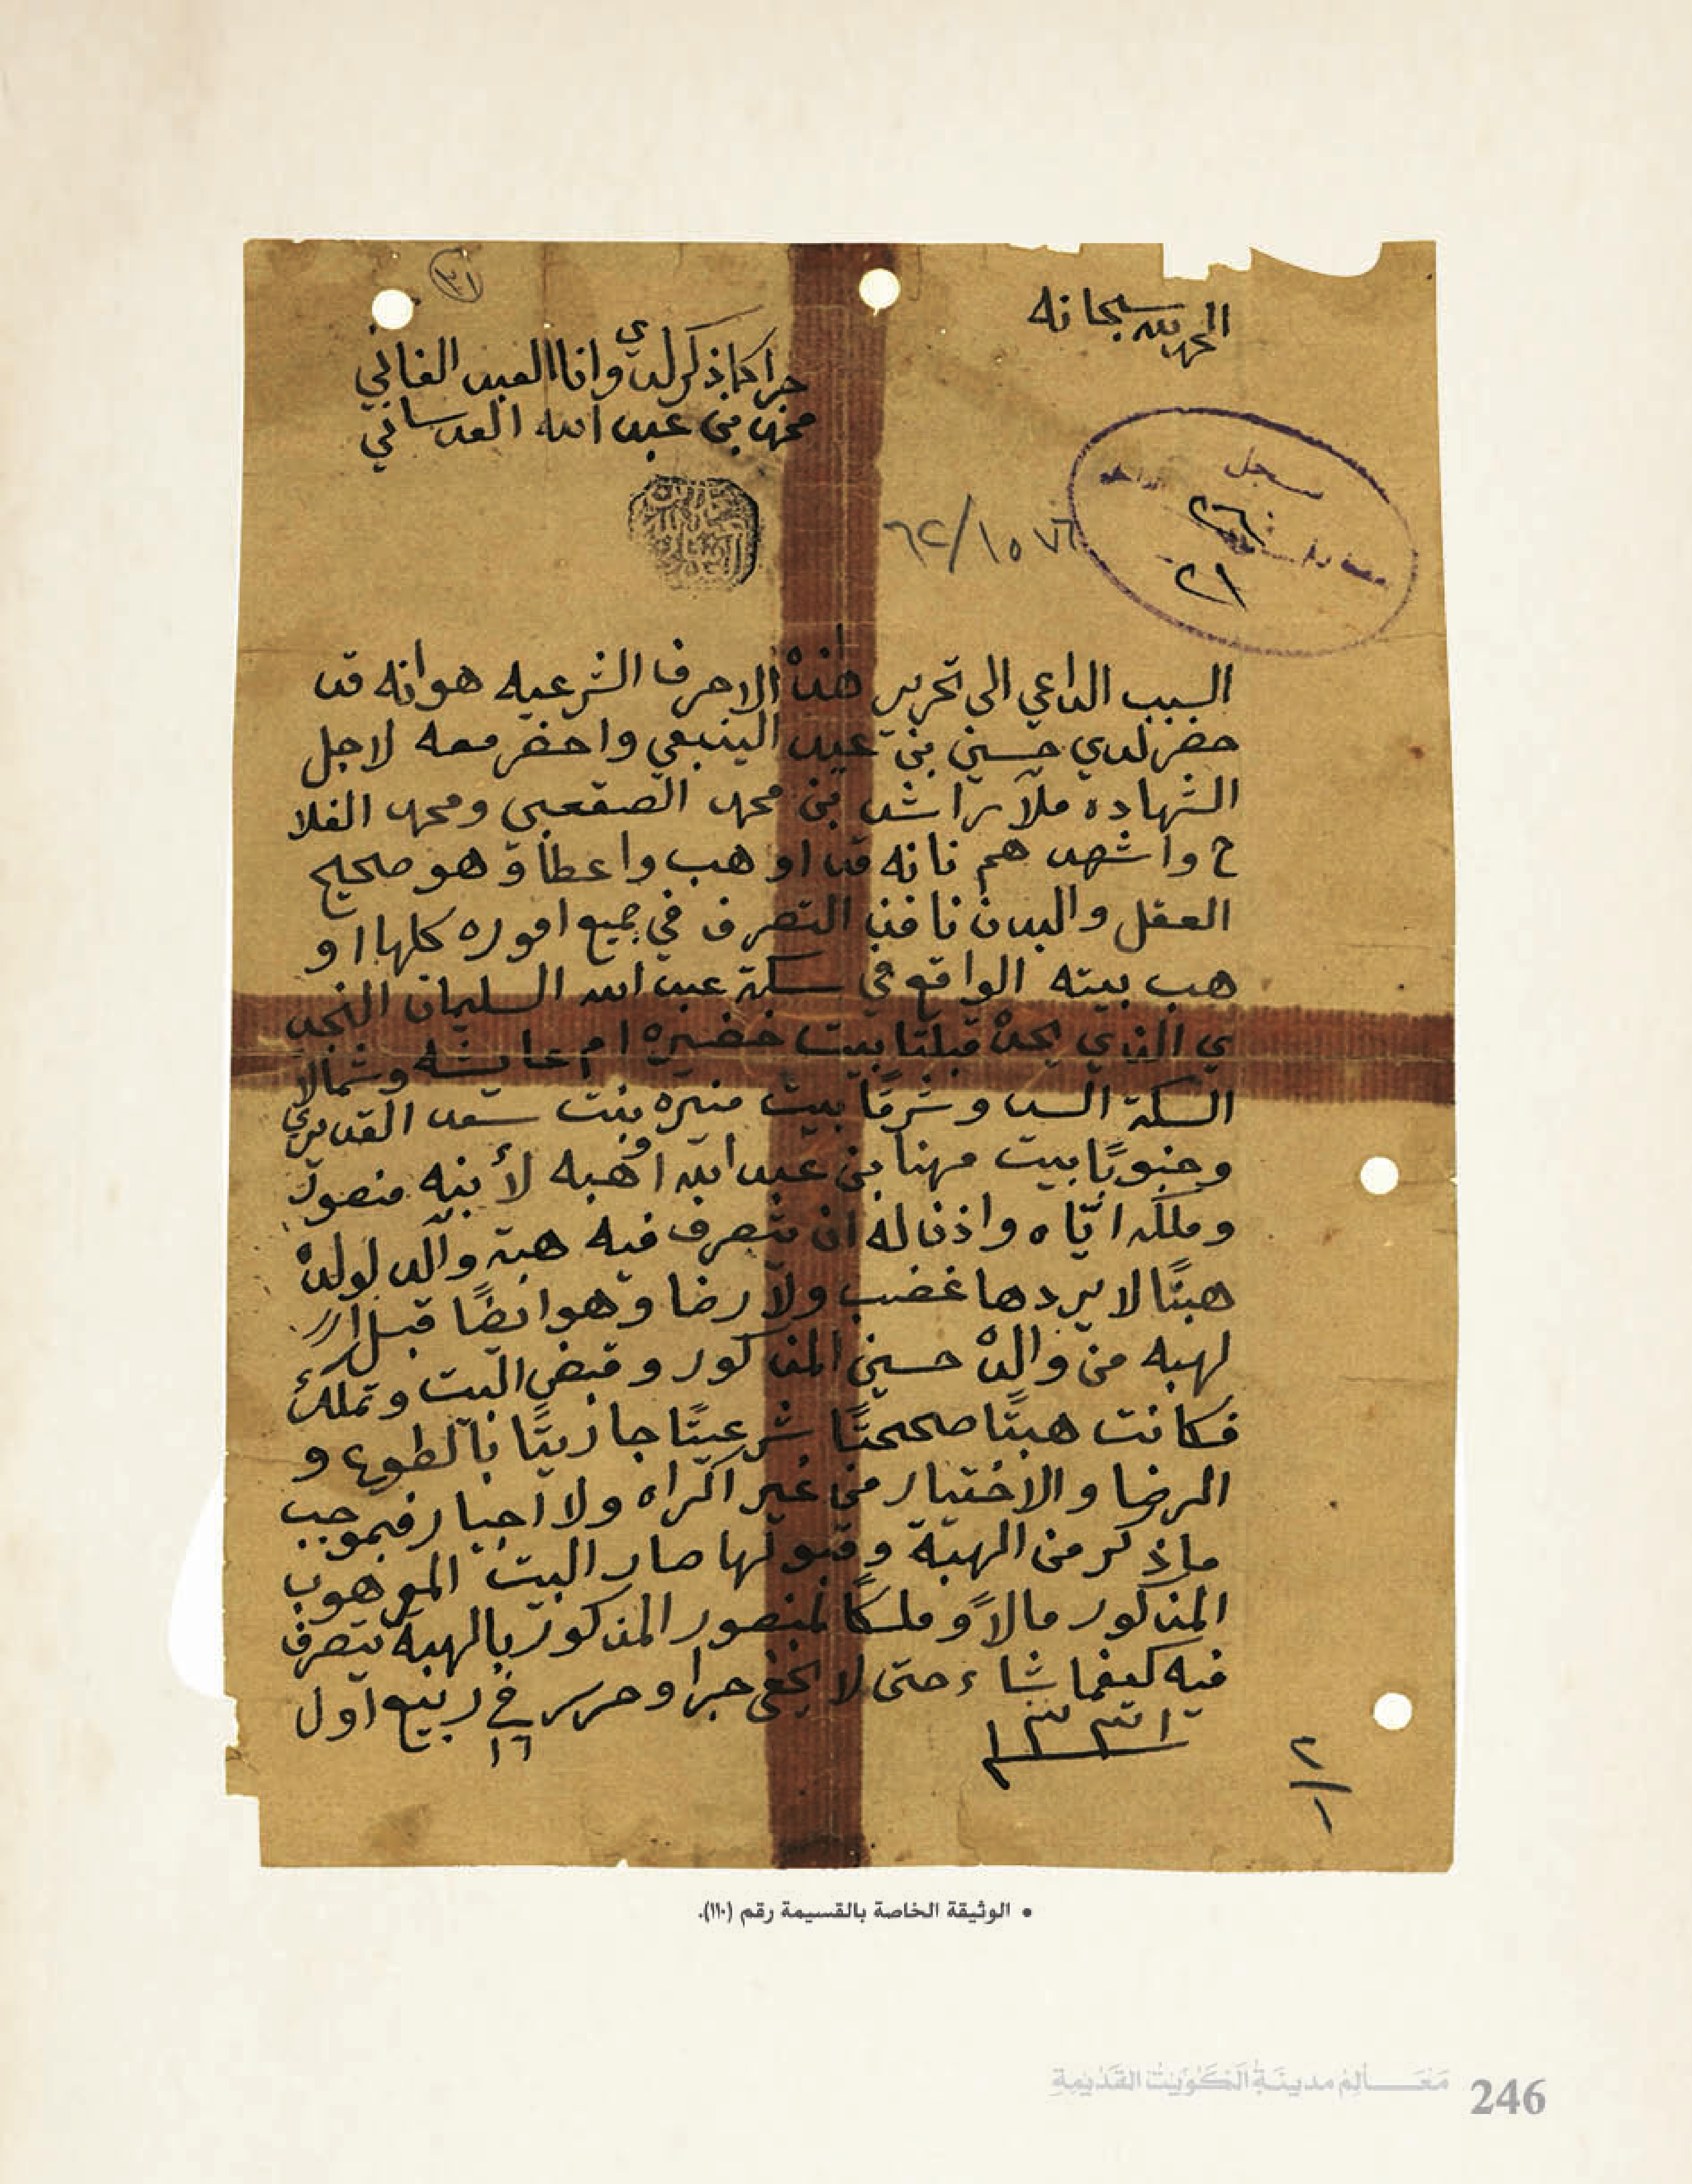 الحمد لله سبحانه
جرا كما ذكر لدي وانا العبد الفاني
محمد بن عبد الله العدساني
سجل
٢٦
٢١
٦٢/١٥٧٦
السبب الداعي الى تحرير هذه الاحرف الشرعيه هو انه قد
حضر لدي حسين بن عيد الينبعي واحضر معه لاجل
الشهاده ملا راشد بن محمد الصقعبي ومحمد الفلا
ح واشهدهم بانه قد اوهب واعطا وهو صحيح
العقل والبدن نافذ التصرف في جميع اموره كلها او
هب بيته الواقع في سكة عبد الله السليمان النجد
ي الذي يحده قبلتا بيت خضيره ام عايشه وشمالا
السكة السد وشرقا بيت منيره بنت سعد القديري
وجنوبًا بيت مهنا بن عبد الله اوهبه لأبنه منصور
وملكه ايّاه واذنا له ان يتصرف فيه هبة والد لولده
هبتًا لا يردها غضب ولا رضا وهو ايضًا قبل ا
لهبه من والده حسين المذكور وقبض البيت وتملكه
فكانت هبتًا صحيحتًا شرعيتًا جازيتًا بالطوع و
الرضا والاختيار من غير اكراه ولا اجبار فبموجب
ماذكر من الهبة وقبولها صار البيت الموهوب
المذكور مالاً وملكًا لمنصور المذكور بالهبة يتصرف
فيه كيفما شاء حتى لا يخفى جرا وحرر في ربيع اول
١٦
١٣٣١
٢/١
• الوثيقة الخاصة بالقسيمة رقم (١١٠).
مَعَالِمُ مدينَةِ الكُوَيْتِ القَدْيمَةِ 246